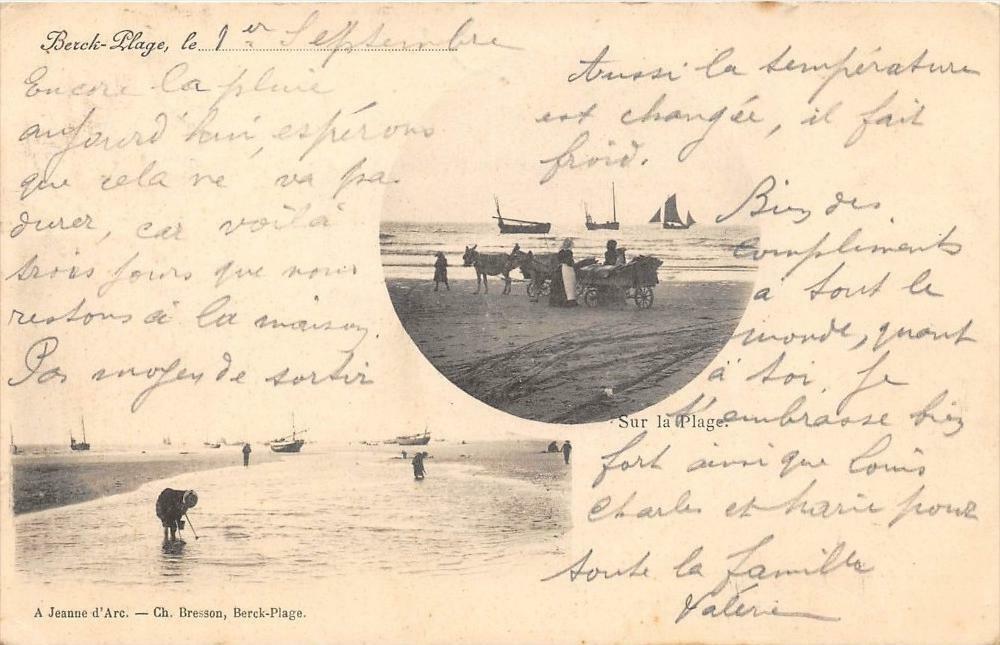 Berck-Plage, le 1er Septembre
Encore la pluie
aujourd'hui, espérons
que cela ne va pas
durer, car voilà
trois jours que nous
restons à la maison.
Pas moyen de sortir
Aussi la température
est changée, il fait
froid.
Bien des
compliments
à tout le
monde, quant
à toi, je
t'embrasse bien
fort ainsi que Louis
Charles et Marie pour
toute la famille
Valérie
Sur la Plage.
A Jeanne d'Arc. — Ch. Bresson, Berck-Plage.